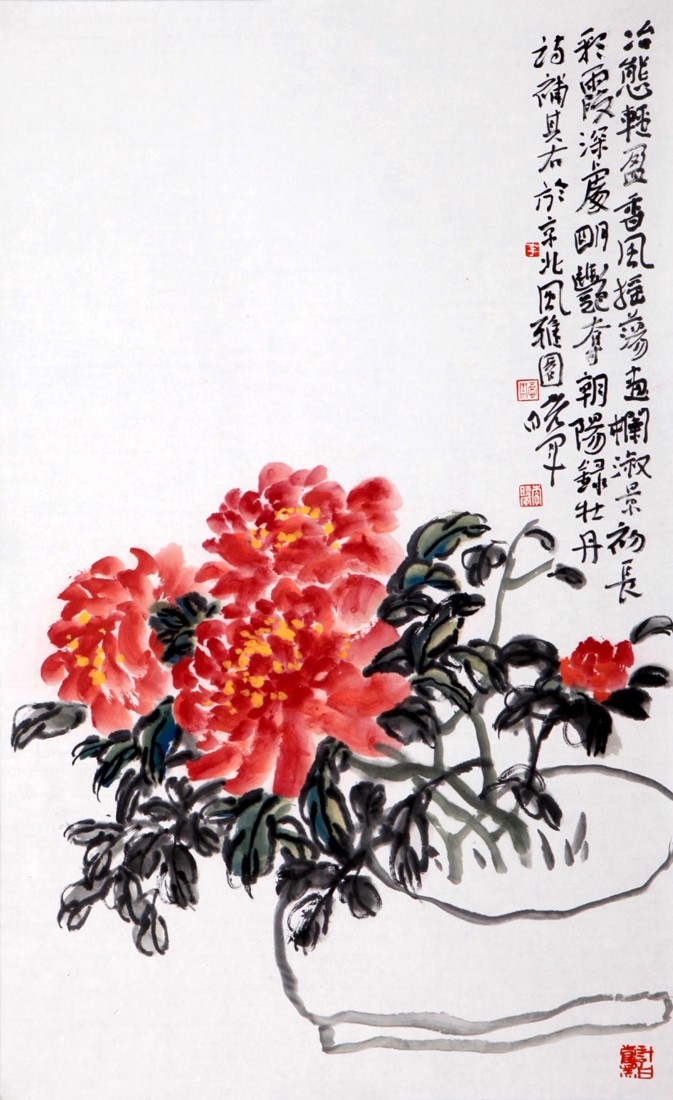 冶態輕盈香風搖蕩畫欄淑景初長
彩霞深處明豔奪朝陽錄牡丹
詩補其右於京北風雅園曉軍
李
計白當黑